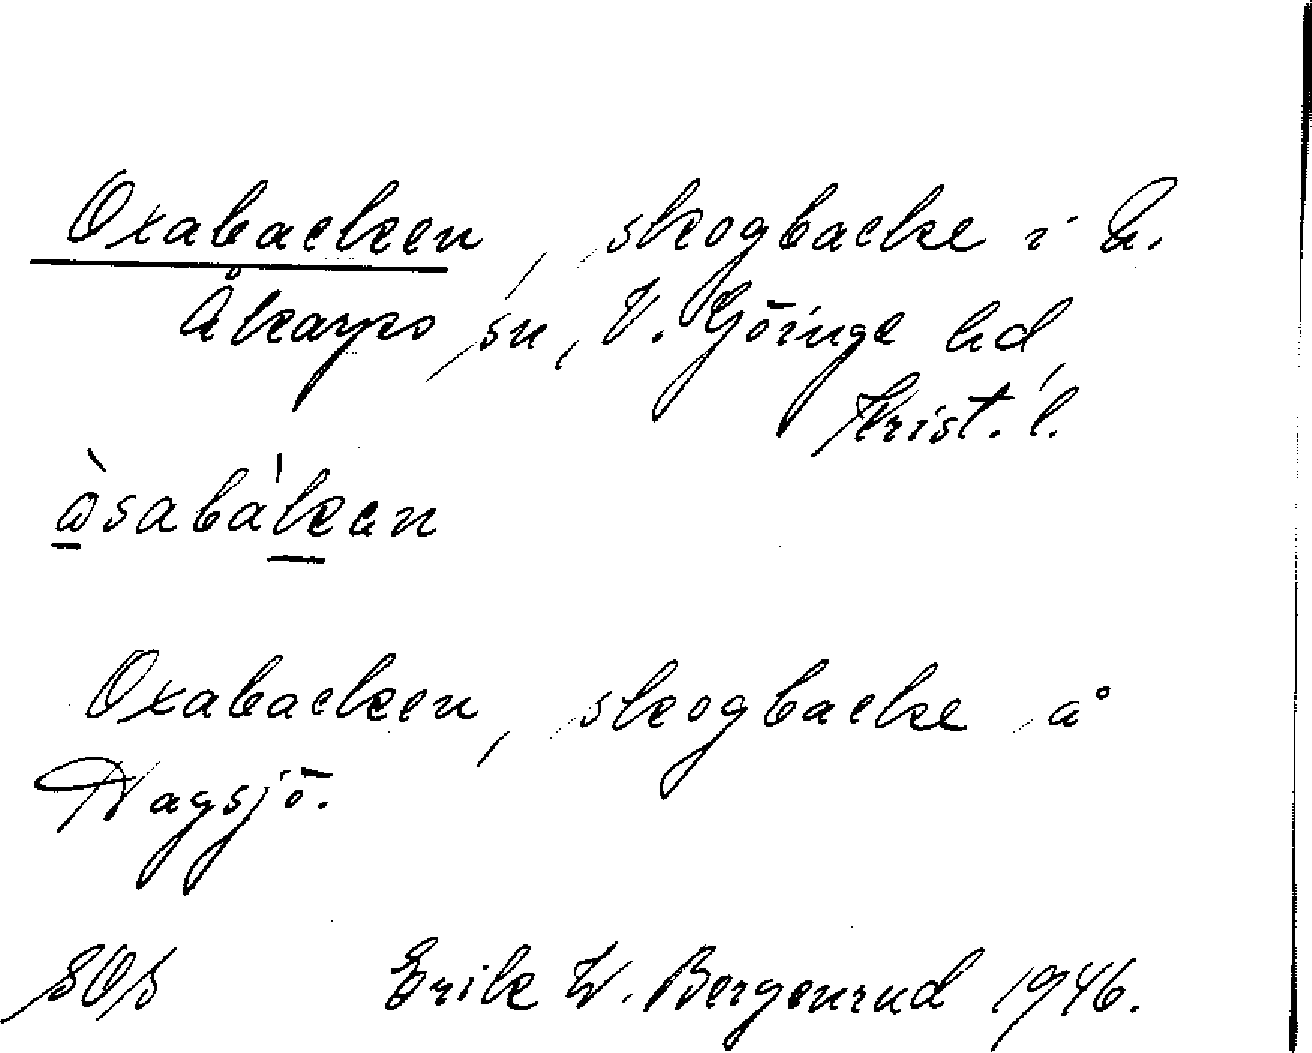 Oxabacken, skogbacke i N.
Åkarps sn, V. Göinge hd,
Krist. l.
àsabákan
Oxabacken, skogbacke å
Nagsjö.
SOS Erik W. Bergenrud 1946.